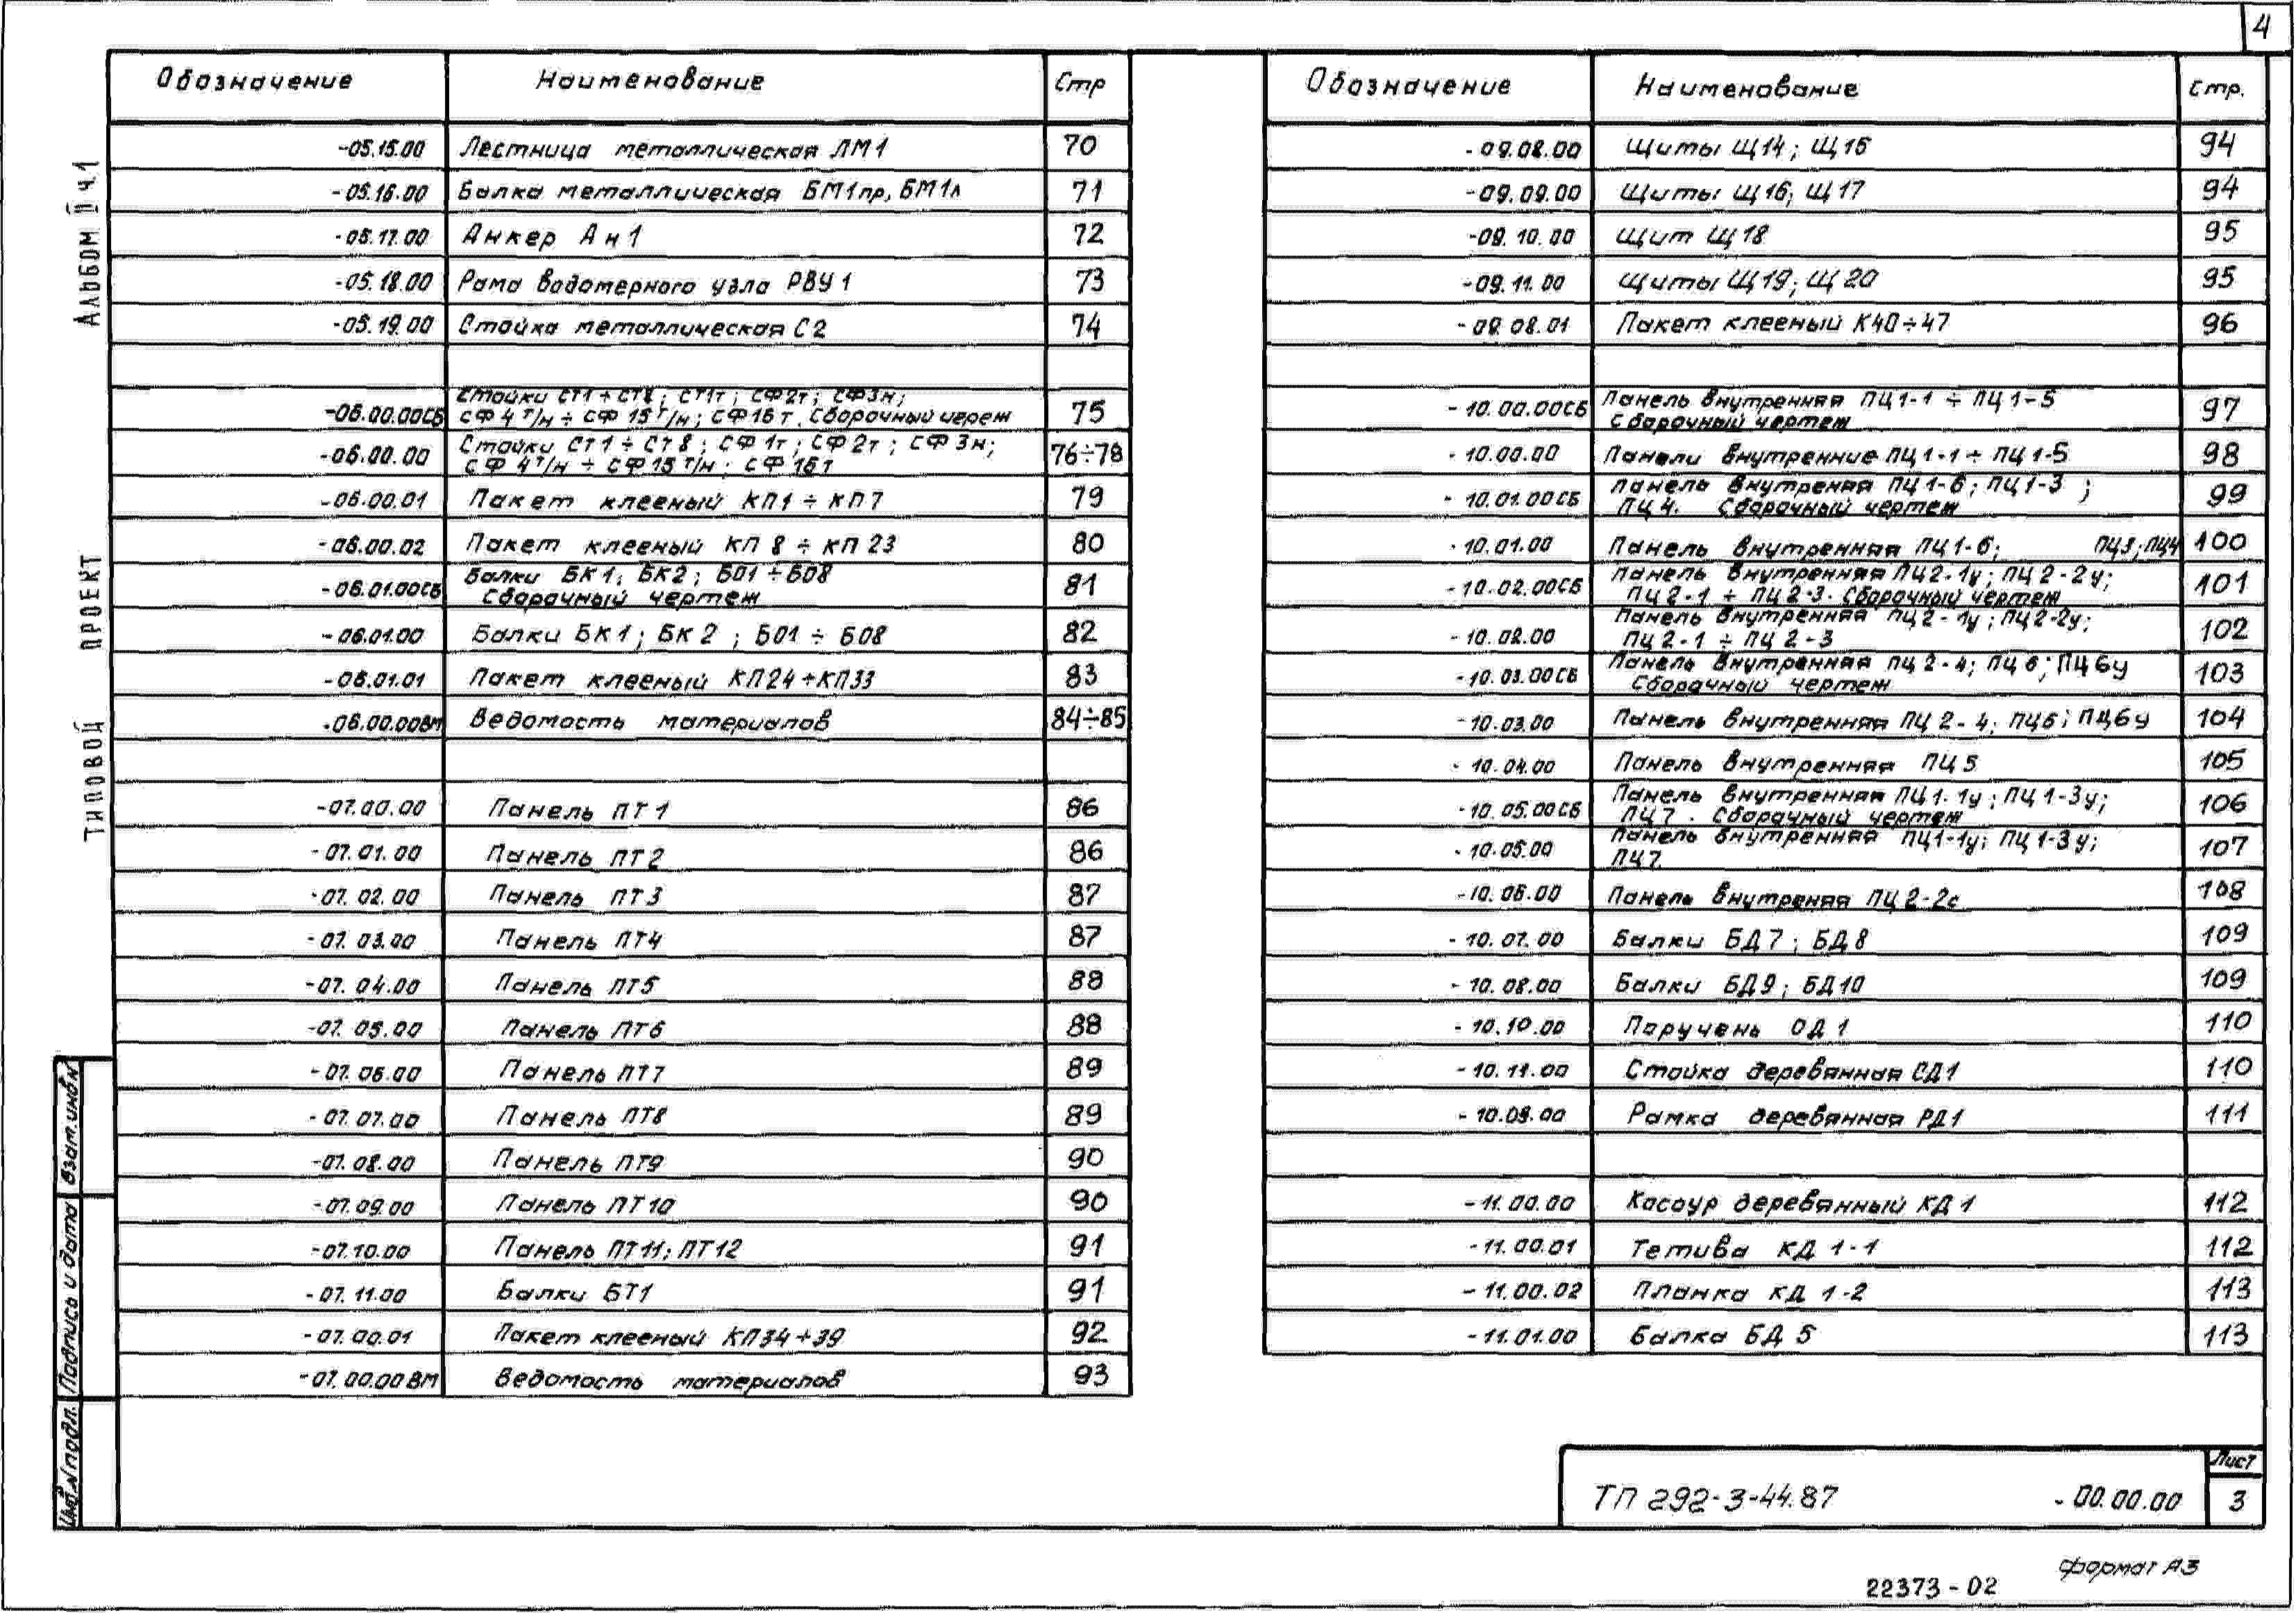 4
Обозначение Наименование Стр
-05.15.00 Лестница металлическая ЛМ1 70
-05.16.00 Балка металлическая БМ1пр, БМ1л 71
-05.17.00 Анкер Ан1 72
-05.18.00 Рама водомерного узла РВУ1 73
-05.19.00 Стойка металлическая С2 74
-06.00.00СБ Стойки СТ1÷СТ8; СФ1т; СФ2т; СФ3н;
СФ4т/н ÷ СФ 15т/н; СФ16т. Сборочный череж 75
-06.00.00 Стойки СТ1÷СТ8; СФ1т; СФ2т; СФ3н;
СФ 4т/н ÷ СФ15т/н; СФ16т 76÷78
-06.00.01 Пакет клееный КП1÷КП7 79
-06.00.02 Пакет клееный КП8÷КП23 80
-06.01.00СБ Балки БК1; БК2; Б01÷Б08
Сборочный чертеж 81
-06.01.00 Балки БК1; БК2; Б01÷Б08 82
-06.01.01 Пакет клееный КП24÷КП33 83
-06.00.00ВМ Ведомость материалов 84÷85
-07.00.00 Панель ПТ1 86
-07.01.00 Панель ПТ2 86
-07.02.00 Панель ПТ3 87
-07.03.00 Панель ПТ4 87
-07.04.00 Панель ПТ5 88
-07.05.00 Панель ПТ6 88
-07.06.00 Панель ПТ7 89
-07.07.00 Панель ПТ8 89
-07.08.00 Панель ПТ9 90
-07.09.00 Панель ПТ10 90
-07.10.00 Панель ПТ11; ПТ12 91
-07.11.00 Балки БТ1 91
-07.00.01 Пакет клееный КП34÷39 92
-07.00.00ВМ Ведомость материалов 93
Обозначение Наименование Стр.
-09.08.00 Щиты Щ14; Щ15 94
-09.09.00 Щиты Щ16; Щ17 94
-09.10.00 Щит Щ18 95
-09.11.00 Щиты Щ19; Щ20 95
-09.08.01 Пакет клееный К40÷47 96
-10.00.00СБ Панель внутренняя ПЦ1-1÷ПЦ1-5
Сборочный чертеж 97
-10.00.00 Панели внутренние ПЦ1-1÷ПЦ1-5 98
-10.01.00СБ Панель внутреняя ПЦ1-6; ПЦ1-3 ;
ПЦ4. Сборочный чертеж 99
-10.01.00 Панель внутренняя ПЦ1-6; ПЦ3; ПЦ4 100
-10.02.00СБ Панель внутренняя ПЦ2-1у; ПЦ2-2у;
ПЦ2-1÷ПЦ2-3. Сборочный чертеж 101
-10.02.00 Панель внутренняя ПЦ2-1у; ПЦ2-2у;
ПЦ2-1÷ПЦ2-3 102
-10.03.00СБ Панель внутренняя ПЦ2-4; ПЦ6; ПЦ6у
Сборочный чертеж 103
-10.03.00 Панель внутренняя ПЦ2-4; ПЦ6; ПЦ6у 104
-10.04.00 Панель внутренняя ПЦ5 105
-10.05.00СБ Панель внутренняя ПЦ1-1у; ПЦ1-3у;
ПЦ7. Сборочный чертеж 106
-10.05.00 Панель внутренняя ПЦ1-1у; ПЦ1-3у;
ПЦ7. 107
-10.06.00 Панель внутреняя ПЦ2-2с 108
-10.07.00 Балки БД7; БД8 109
-10.08.00 Балки БД9; БД10 109
-10.10.00 Поручень ОД1 110
-10.11.00 Стойка деревянная СД1 110
-10.09.00 Рамка деревянная РД1 111
-11.00.00 Косоур деревянный КД1 112
-11.00.01 Тетива КД 1-1 112
-11.00.02 Планка КД 1-2 113
-11.01.00 Балка БД5 113
АЛЬБОМ II ч.1
ТИПОВОЙ ПРОЕКТ
Взам.инв№
Подпись и дата
Инв.№ подл.
ТП 292-3-44.87 -00.00.00
Лист
3
Формат А3
22373-02